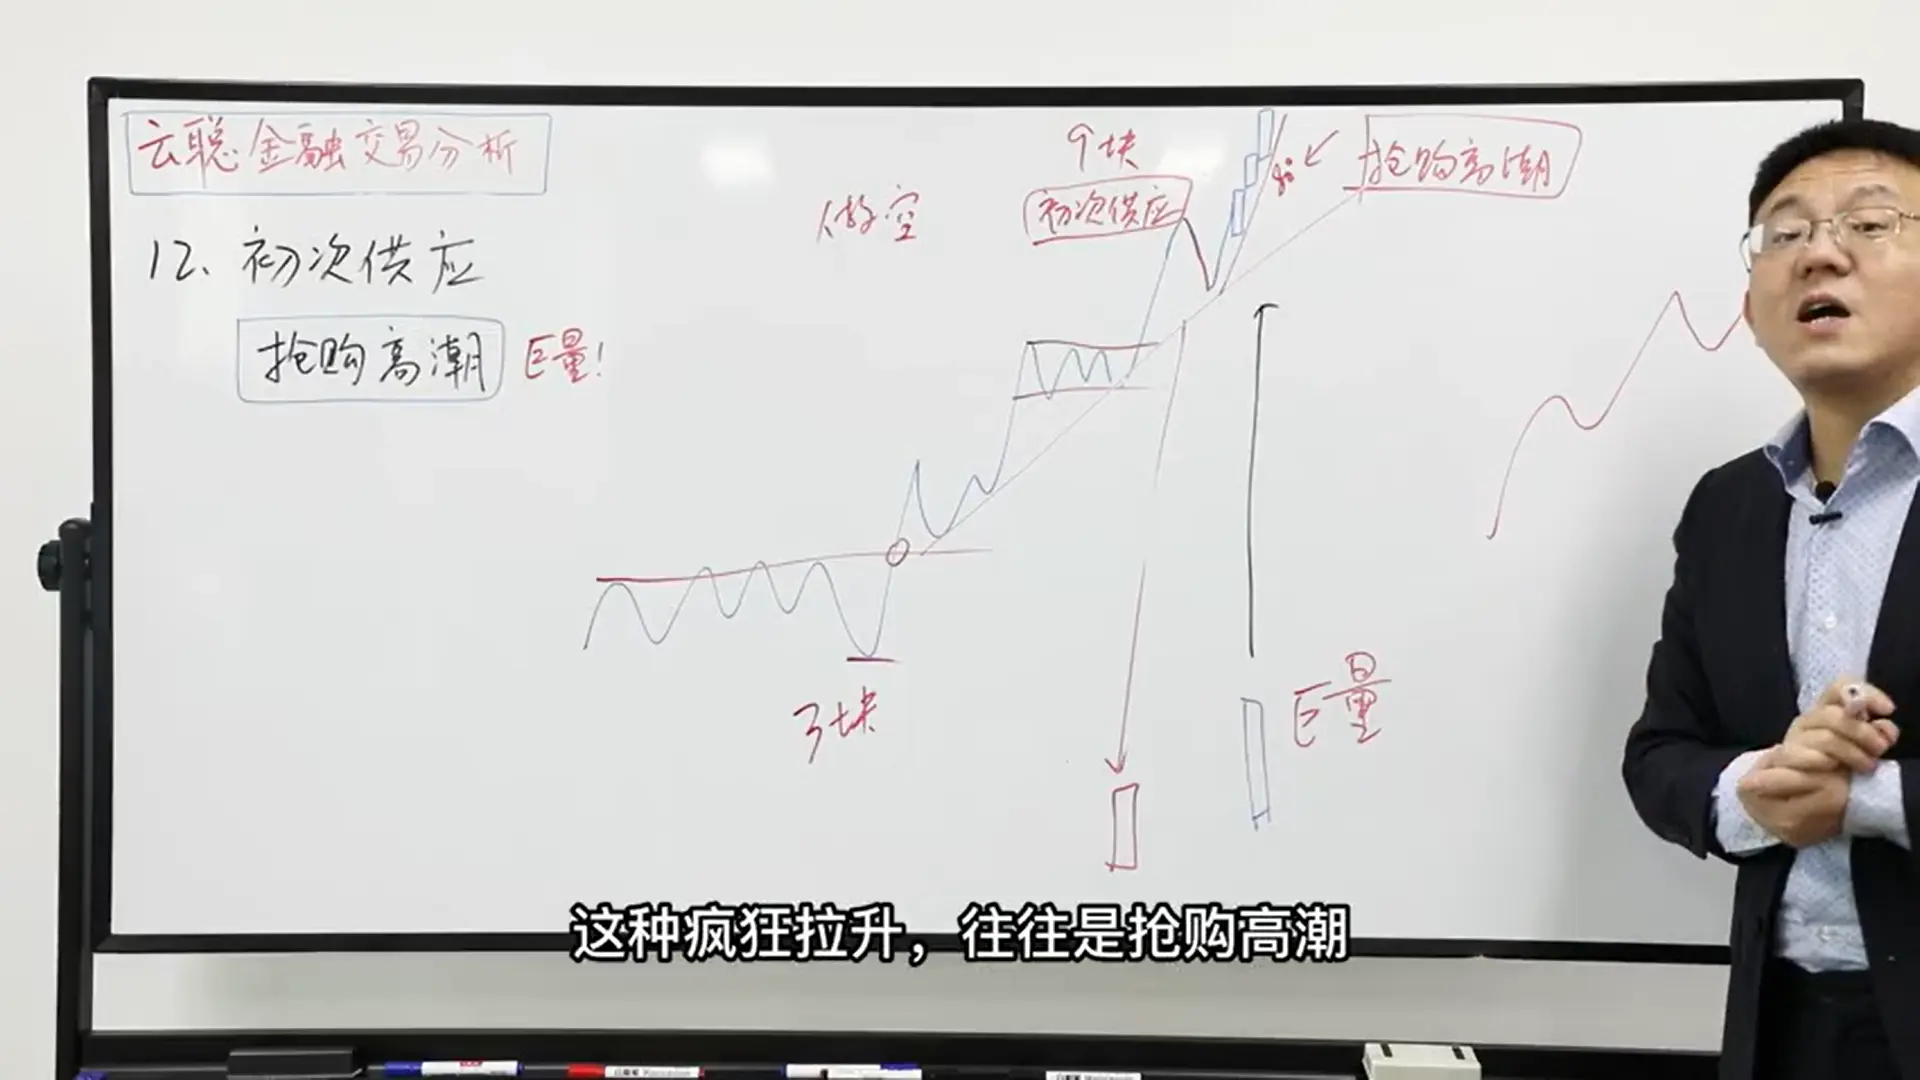 云聪金融交易分析
12、初次供应
抢购高潮 巨量!
做空
9块
初次供应
80°
抢购高潮
3块
巨量
这种疯狂拉升，往往是抢购高潮